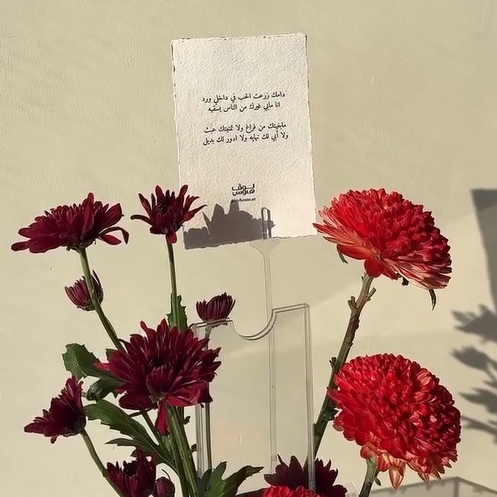 دامك زرعت الحب في داخلي ورد
انا مابي غيرك من الناس يسقيه
مابغيتك من فراغ ولا تمنيتك عبث
ولا أبي لك نهايه ولا ادور لك بديل
لوف
هاوس